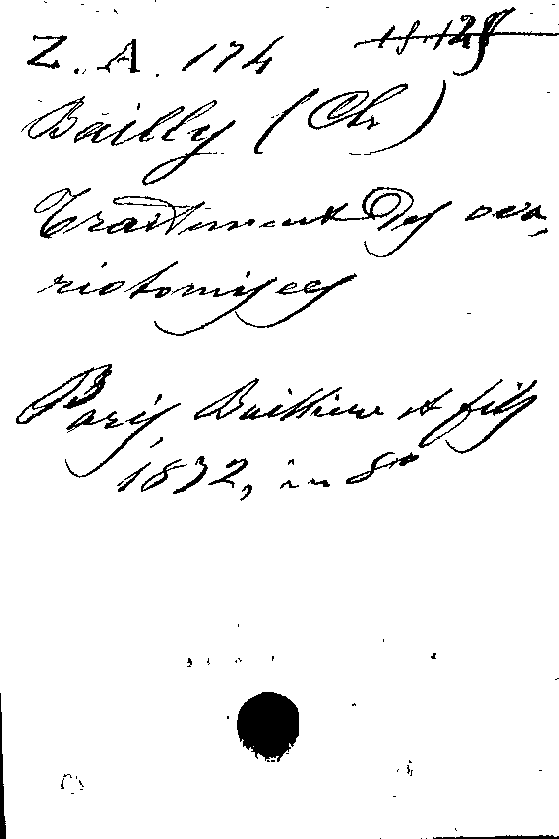 Z. A. 174 11.128
Bailly (Ch)
Traitement des ova,
riotomisees
Paris, Baillière et fils
1872, in 8°